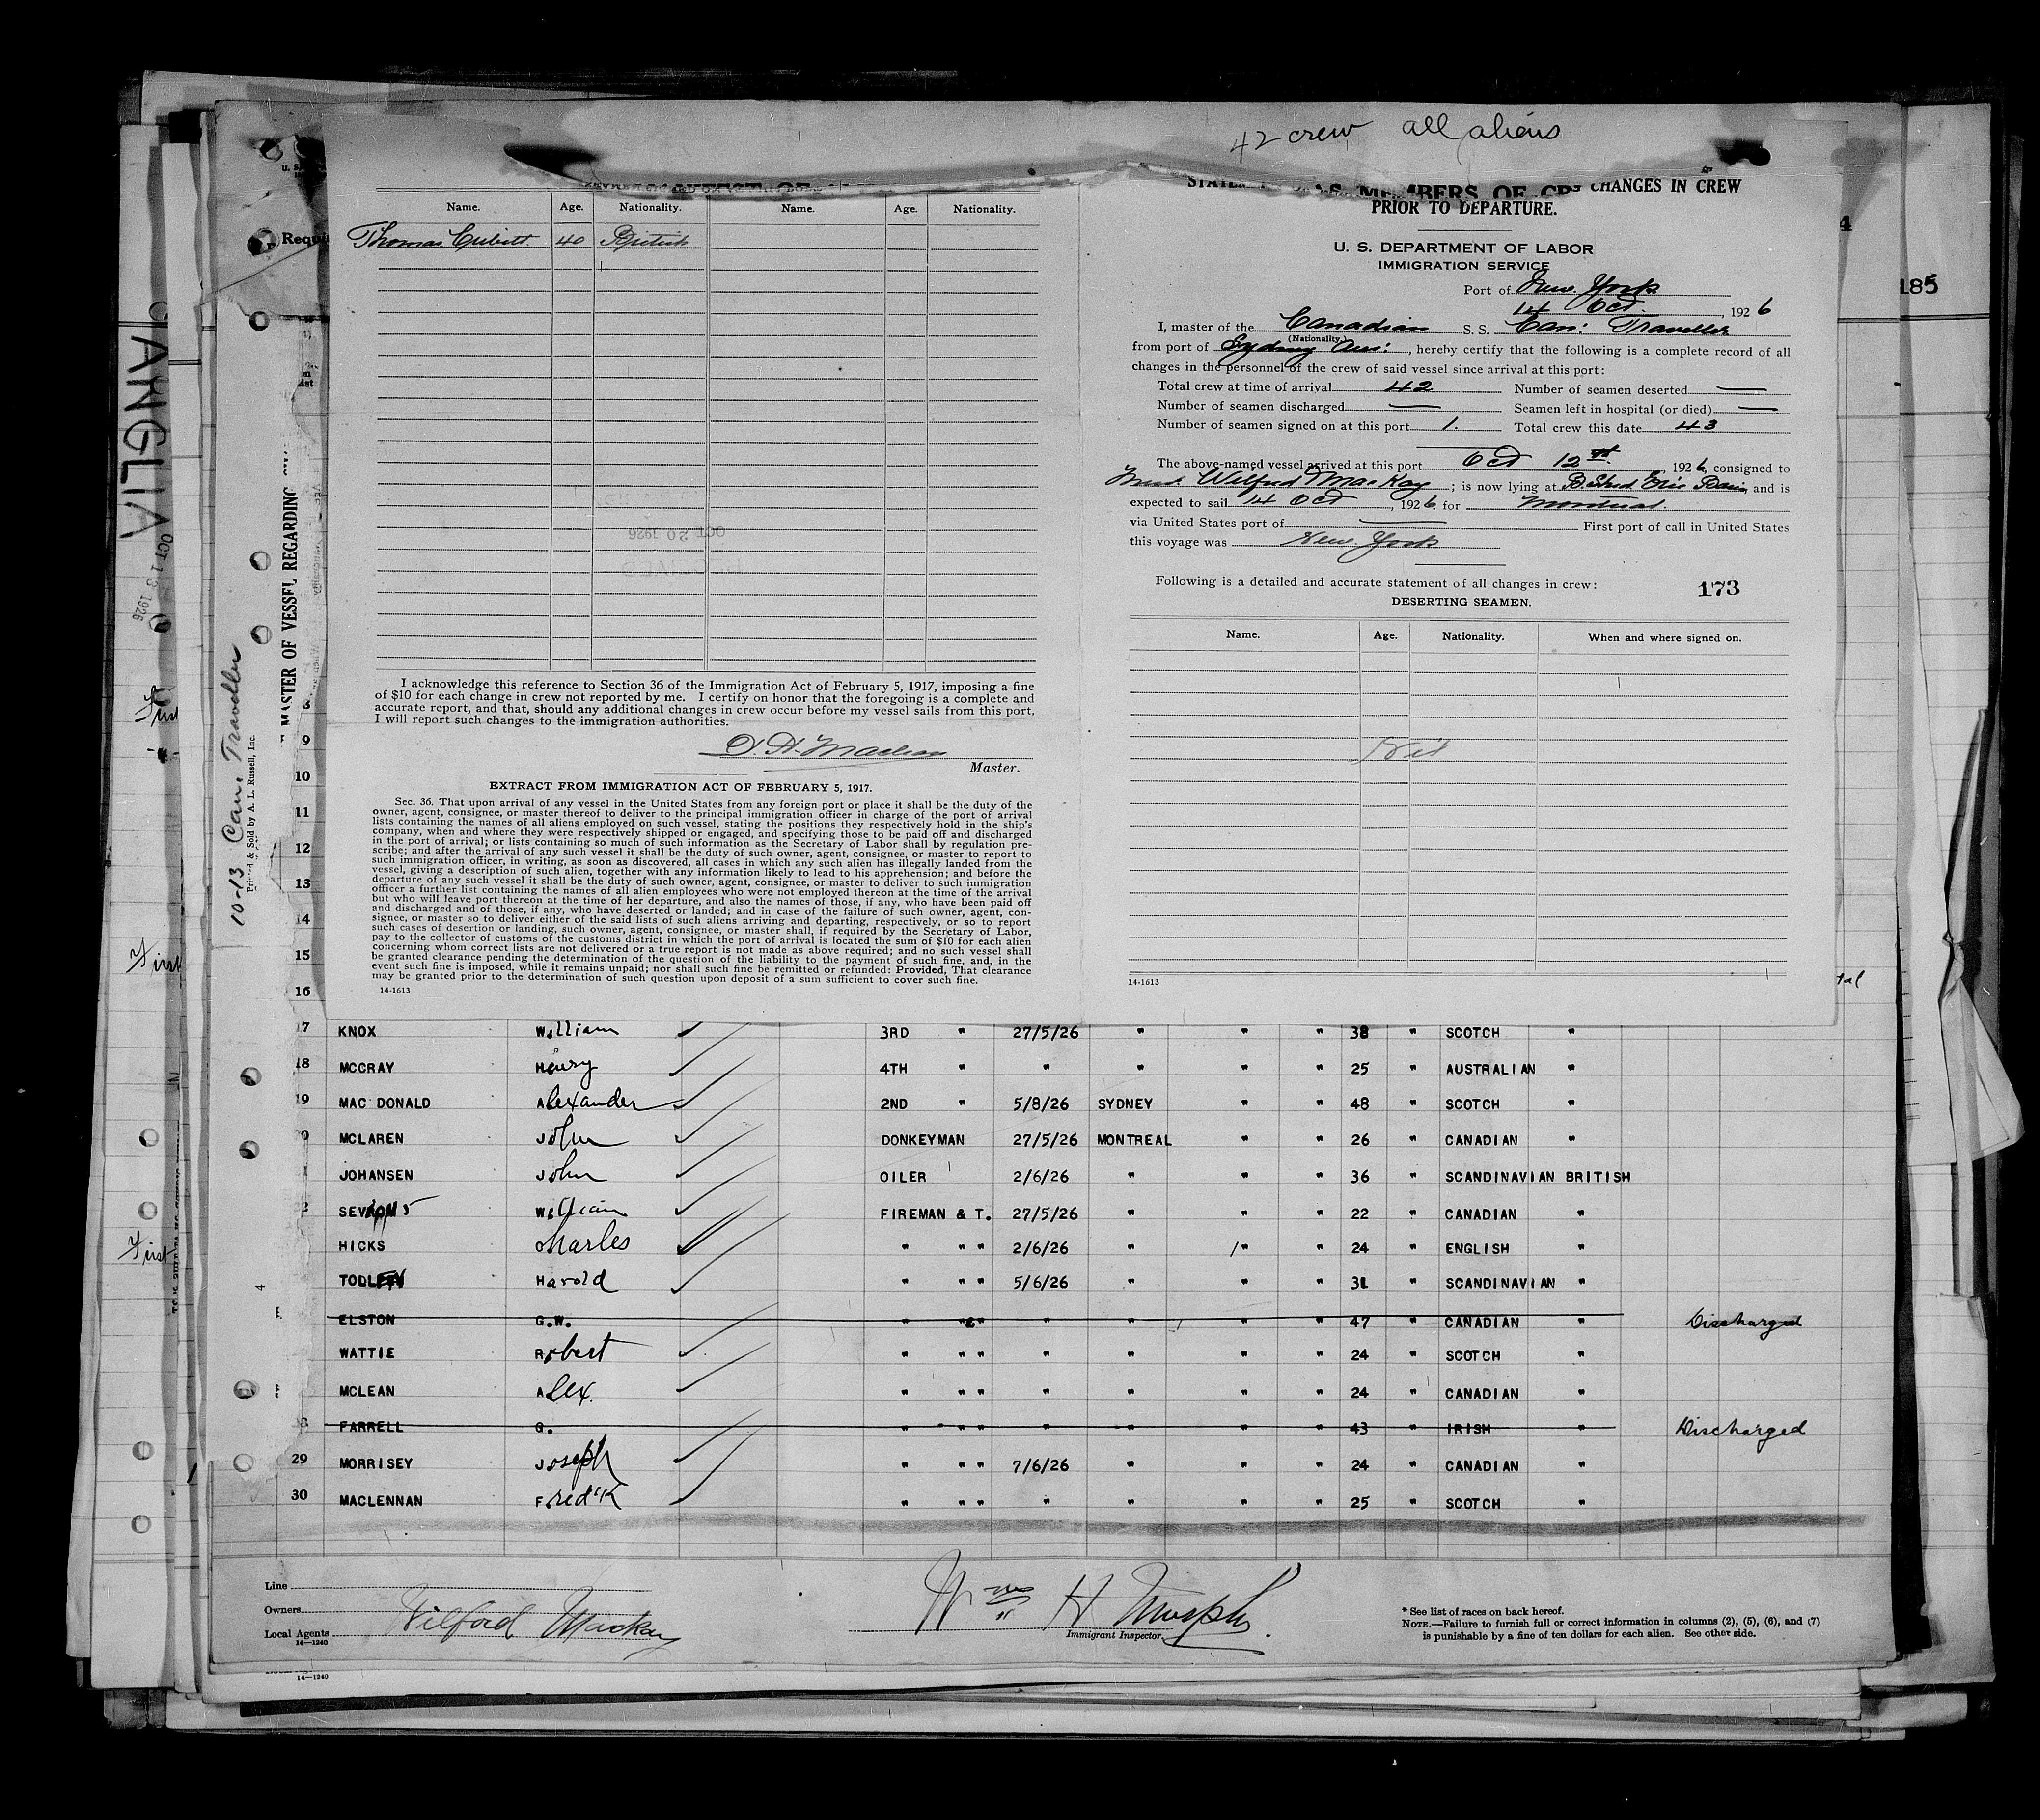 42 crew all aliens
Name. Age. Nationality. Name. Age. Nationality.
Thomas 40 British
OCT 20 1926
I acknowledge this reference to Section 36 of the Immigration Act of February 5, 1917, imposing a fine
of $10 for each change in crew not reported by me. I certify on honor that the foregoing is a complete and
accurate report, and that, should any additional changes in crew occur before my vessel sails from this port,
I will report such changes to the immigration authorities.
Master.
EXTRACT FROM IMMIGRATION ACT OF FEBRUARY 5, 1917.
Sec. 36. That upon arrival of any vessel in the United States from any foreign port or place it shall be the duty of the
owner, agent, consignee, or master thereof to deliver to the principal immigration officer in charge of the port of arrival
lists containing the names of all aliens employed on such vessel, stating the positions they respectively hold in the ship's
company, when and where they were respectively shipped or engaged, and specifying those to be paid off and discharged
in the port of arrival; or lists containing so much of such information as the Secretary of Labor shall by regulation pre-
scribe; and after the arrival of any such vessel it shall be the duty of such owner, agent, consignee, or master to report to
such immigration officer, in writing, as soon as discovered, all cases in which any such alien has illegally landed from the
vessel, giving a description of such alien, together with any information likely to lead to his apprehension; and before the
departure of any such vessel it shall be the duty of such owner, agent, consignee, or master to deliver to such immigration
officer a further list containing the names of all alien employees who were not employed thereon at the time of the arrival
but who will leave port thereon at the time of her departure, and also the names of those, if any, who have been paid off
and discharged and of those, if any, who have deserted or landed; and in case of the failure of such owner, agent, con-
signee, or master so to deliver either of the said lists of such aliens arriving and departing, respectively, or so to report
such cases of desertion or landing, such owner, agent, consignee, or master shall, if required by the Secretary of Labor,
pay to the collector of customs of the customs district in which the port of arrival is located the sum of $10 for each alien
concerning whom correct lists are not delivered or a true report is not made as above required; and no such vessel shall
be granted clearance pending the determination of the question of the liability to the payment of such fine, and, in the
event such fine is imposed, while it remains unpaid; nor shall such fine be remitted or refunded: Provided, That clearance
may be granted prior to the determination of such question upon deposit of a sum sufficient to cover such fine.
14-1613
CHANGES IN CREW
PRIOR TO DEPARTURE.
U. S. DEPARTMENT OF LABOR
IMMIGRATION SERVICE
Port of New York
14 Oct. , 1926
I, master of the Canadian S. S. Can: Traveller
(Nationality.)
from port of Sydney Aus: , hereby certify that the following is a complete record of all
changes in the personnel of the crew of said vessel since arrival at this port:
Total crew at time of arrival 42 Number of seamen deserted —
Number of seamen discharged — Seamen left in hospital (or died) —
Number of seamen signed on at this port 1. Total crew this date 43
The above-named vessel arrived at this port Oct 12th , 1926, consigned to
Wilfred MacKay ; is now lying at Erie Basin and is
expected to sail 14 Oct , 1926 for Montreal.
via United States port of — First port of call in United States
this voyage was New York
Following is a detailed and accurate statement of all changes in crew: 173
DESERTING SEAMEN.
Name. Age. Nationality. When and where signed on.
Nil
14-1613
185
ANGLIA
OCT 13 1926
First
First
First
10-13 Can. Traveller
Printed & Sold by A. L. Russell, Inc.
MASTER OF VESSEL REGARDING
9
10
11
12
13
14
15
16
17 KNOX William 3RD " 27/5/26 " " " 38 " SCOTCH "
18 MCCRAY Henry 4TH " " " " " 25 " AUSTRALIAN "
19 MAC DONALD Alexander 2ND " 5/8/26 SYDNEY " " 48 " SCOTCH "
MCLAREN John DONKEYMAN 27/5/26 MONTREAL " " 26 " CANADIAN "
JOHANSEN John OILER 2/6/26 " " " 36 " SCANDINAVIAN BRITISH
William FIREMAN & T. 27/5/26 " " " 22 " CANADIAN "
HICKS Charles " " " 2/6/26 " " " 24 " ENGLISH "
Harold " " " 5/6/26 " " " 31 " SCANDINAVIAN "
ELSTON G.W. " " " " " " " 47 " CANADIAN " Discharged
WATTIE Robert " " " " " " " 24 " SCOTCH "
MCLEAN Alex. " " " " " " " 24 " CANADIAN "
FARRELL G. " " " " " " " 43 " IRISH " Discharged
29 MORRISEY Joseph " " " 7/6/26 " " " 24 " CANADIAN "
30 MACLENNAN Fred'k " " " " " " " 25 " SCOTCH "
Line
Owners
Local Agents Wilford Mackay
14—1240
Wm H Murphy
Immigrant Inspector.
* See list of races on back hereof.
NOTE.—Failure to furnish full or correct information in columns (2), (5), (6), and (7)
is punishable by a fine of ten dollars for each alien. See other side.
14—1240